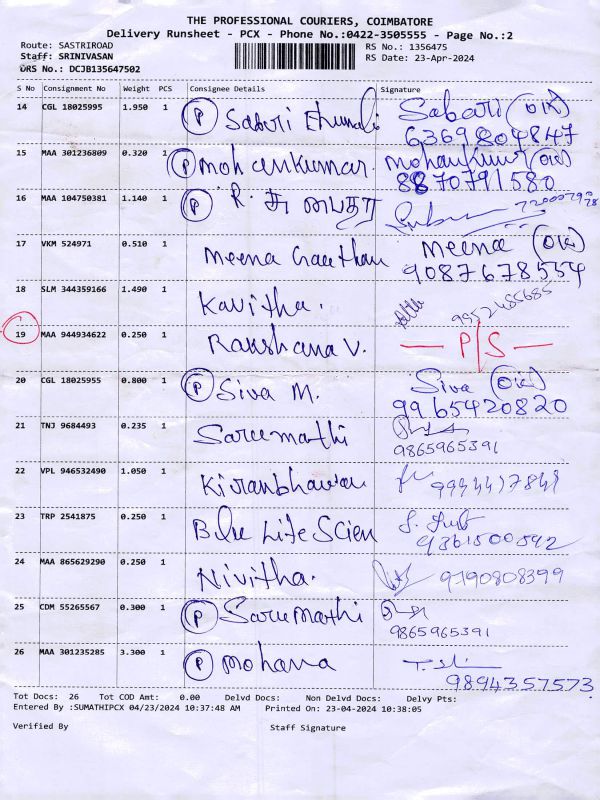 THE PROFESSIONAL COURIERS, COIMBATORE
Delivery Runsheet - PCX - Phone No.:0422-3505555 - Page No.:2
Route: SASTRIROAD RS No.: 1356475
Staff: SRINIVASAN RS Date: 23-Apr-2024
DRS No.: DCJB135647502
S No Consignment No Weight PCS Consignee Details Signature
14 CGL 18025995 1.950 1 (P) Saburi Ehumali Sabari (OK)
6369804847
15 MAA 301236809 0.320 1 (P) mohankumar. mohankumar (OK)
8870791580
16 MAA 104750381 1.140 1 (P) R. சு பைதரா
17 VKM 524971 0.510 1 Meena Gauthan Meena (OK)
9087678554
18 SLM 344359166 1.490 1 Kavitha. 9952485685
19 MAA 944934622 0.250 1 Rakshana V. — P/S —
20 CGL 18025955 0.800 1 (P) Siva M. Siva (OK)
9965420820
21 TNJ 9684493 0.235 1 Sarumathi
9865965391
22 VPL 946532490 1.050 1 Kiranbhavan
23 TRP 2541875 0.250 1 Blue Life Scien
9361500592
24 MAA 865629290 0.250 1 Nivitha. 9190808399
25 CDM 55265567 0.300 1 (P) Sarumathi
9865965391
26 MAA 301235285 3.300 1 (P) mohana
9894357573
Tot Docs: 26 Tot COD Amt: 0.00 Delvd Docs: Non Delvd Docs: Delvy Pts:
Entered By :SUMATHIPCX 04/23/2024 10:37:48 AM Printed On: 23-04-2024 10:38:05
Verified By Staff Signature